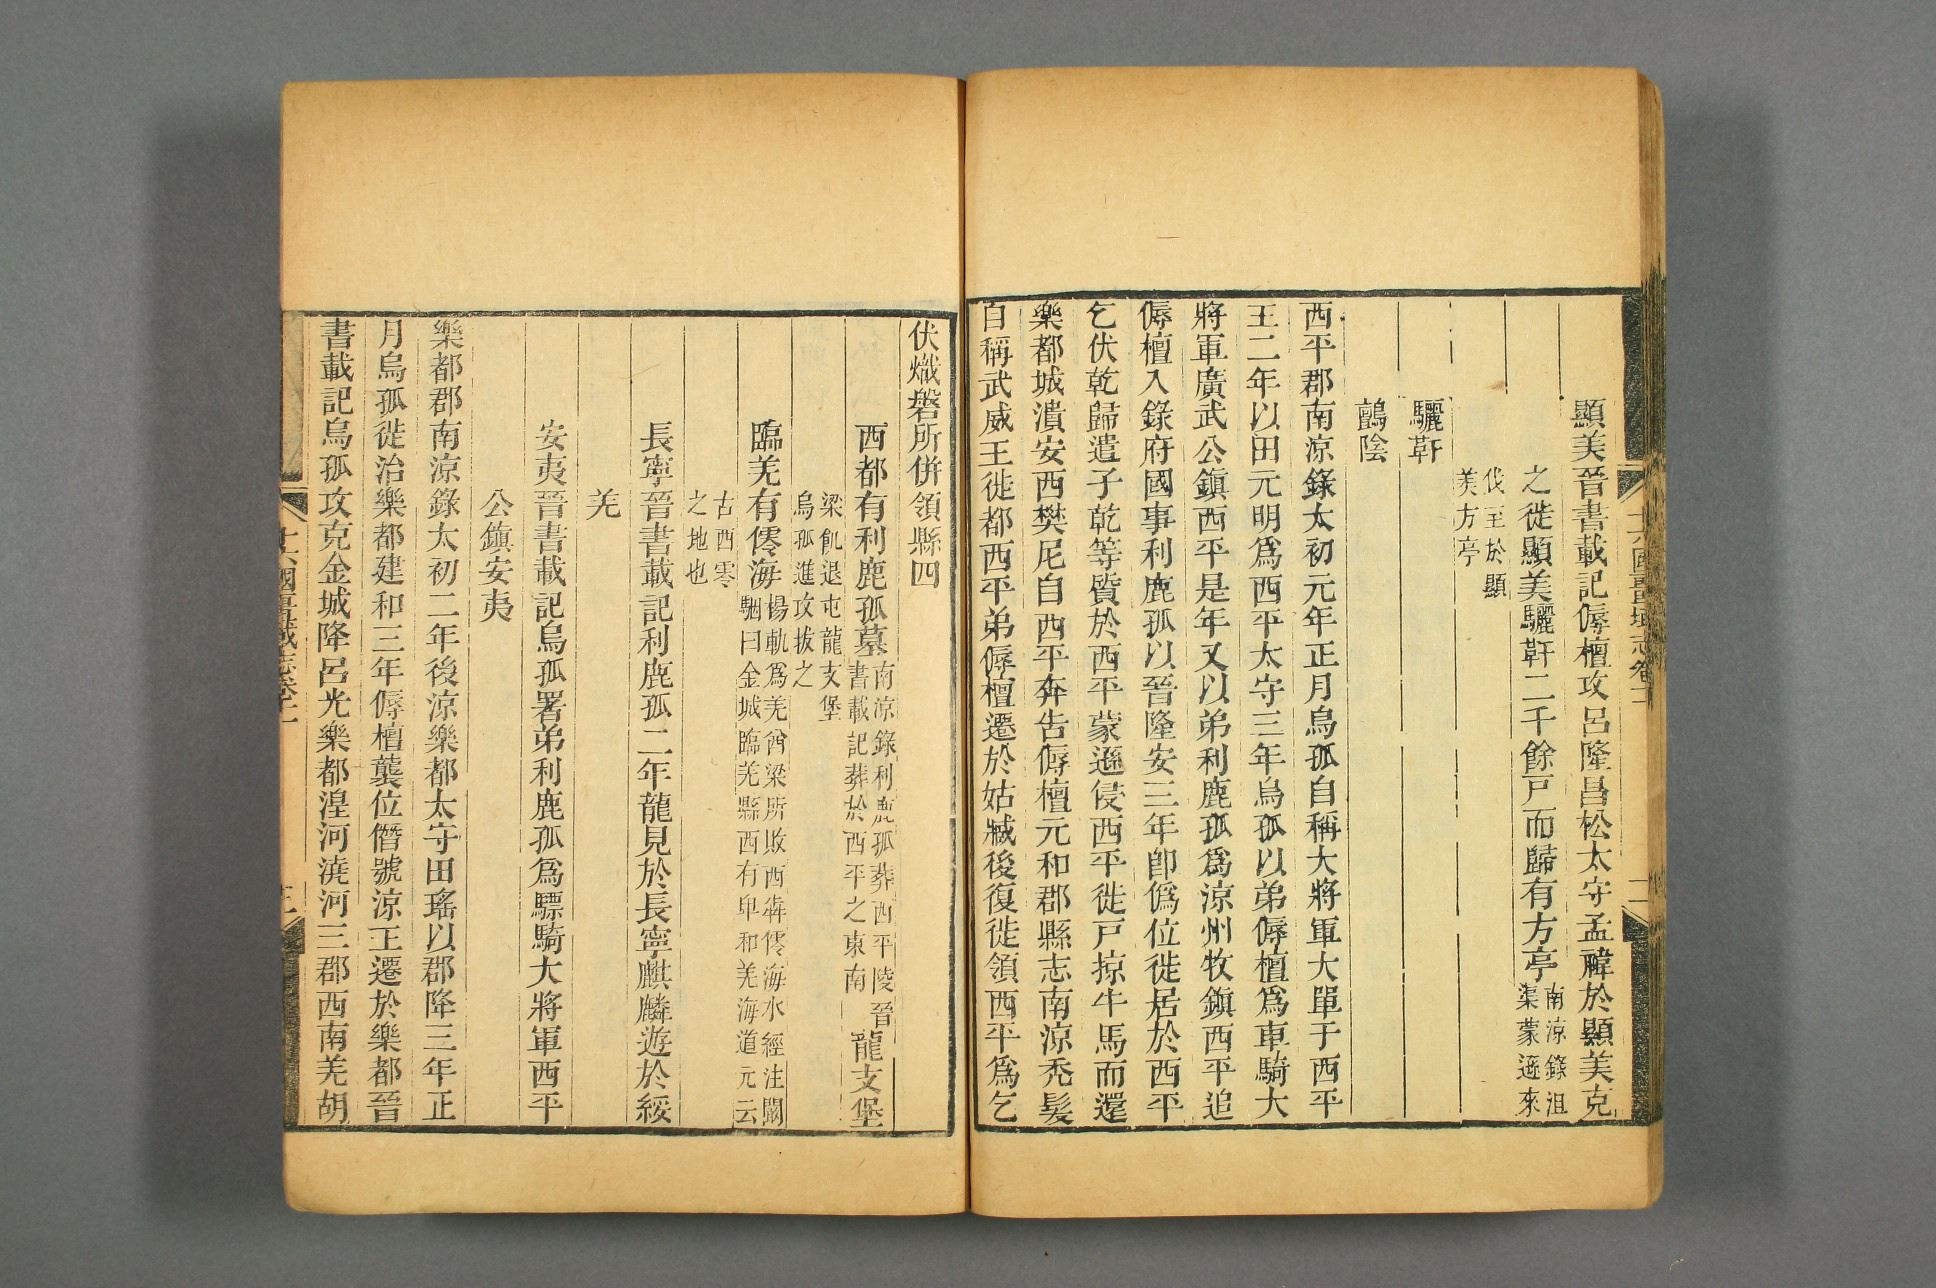 顯美晉書載記傉檀攻呂隆昌松太守孟禕於顯美克
之徙顯美驪靬二千餘戸而歸有方亭南涼錄沮
渠蒙遜來
伐至於顯
美方亭
驪靬
鸇陰
西平郡南涼錄太初元年正月烏孤自稱大將軍大單于西平
王二年以田元明爲西平太守三年烏孤以弟傉檀爲車騎大
將軍廣武公鎭西平是年又以弟利鹿孤爲涼州牧鎭西平追
傉檀入錄府國事利鹿孤以晉隆安三年卽僞位徙居於西平
乞伏乾歸遣子乾等質於西平蒙遜侵西平徙戸掠牛馬而還
樂都城潰安西樊尼自西平奔告傉檀元和郡縣志南涼禿髮
自稱武威王徙都西平弟傉檀遷於姑臧後復徙領西平爲乞
十六國疆域志卷十
伏熾磐所併領縣四
西都有利鹿孤墓南涼錄利鹿孤葬西平陵晉
書載記葬於西平之東南
龍支堡
梁飢退屯龍支堡
烏孤進攻拔之
臨羌有零海楊軌爲羌酋梁所敗西奔零海水經注闞
駰曰金城臨羌縣西有卑和羌海道元云
古西零
之地也
長寧晉書載記利鹿孤二年龍見於長寧麒麟遊於綏
羌
安夷晉書載記烏孤署弟利鹿孤爲驃騎大將軍西平
公鎭安夷
樂都郡南涼錄太初二年後涼樂都太守田瑤以郡降三年正
月烏孤徙治樂都建和三年傉檀襲位僭號涼王遷於樂都晉
書載記烏孤攻克金城降呂光樂都湟河澆河三郡西南羌胡
十六國疆域志卷十